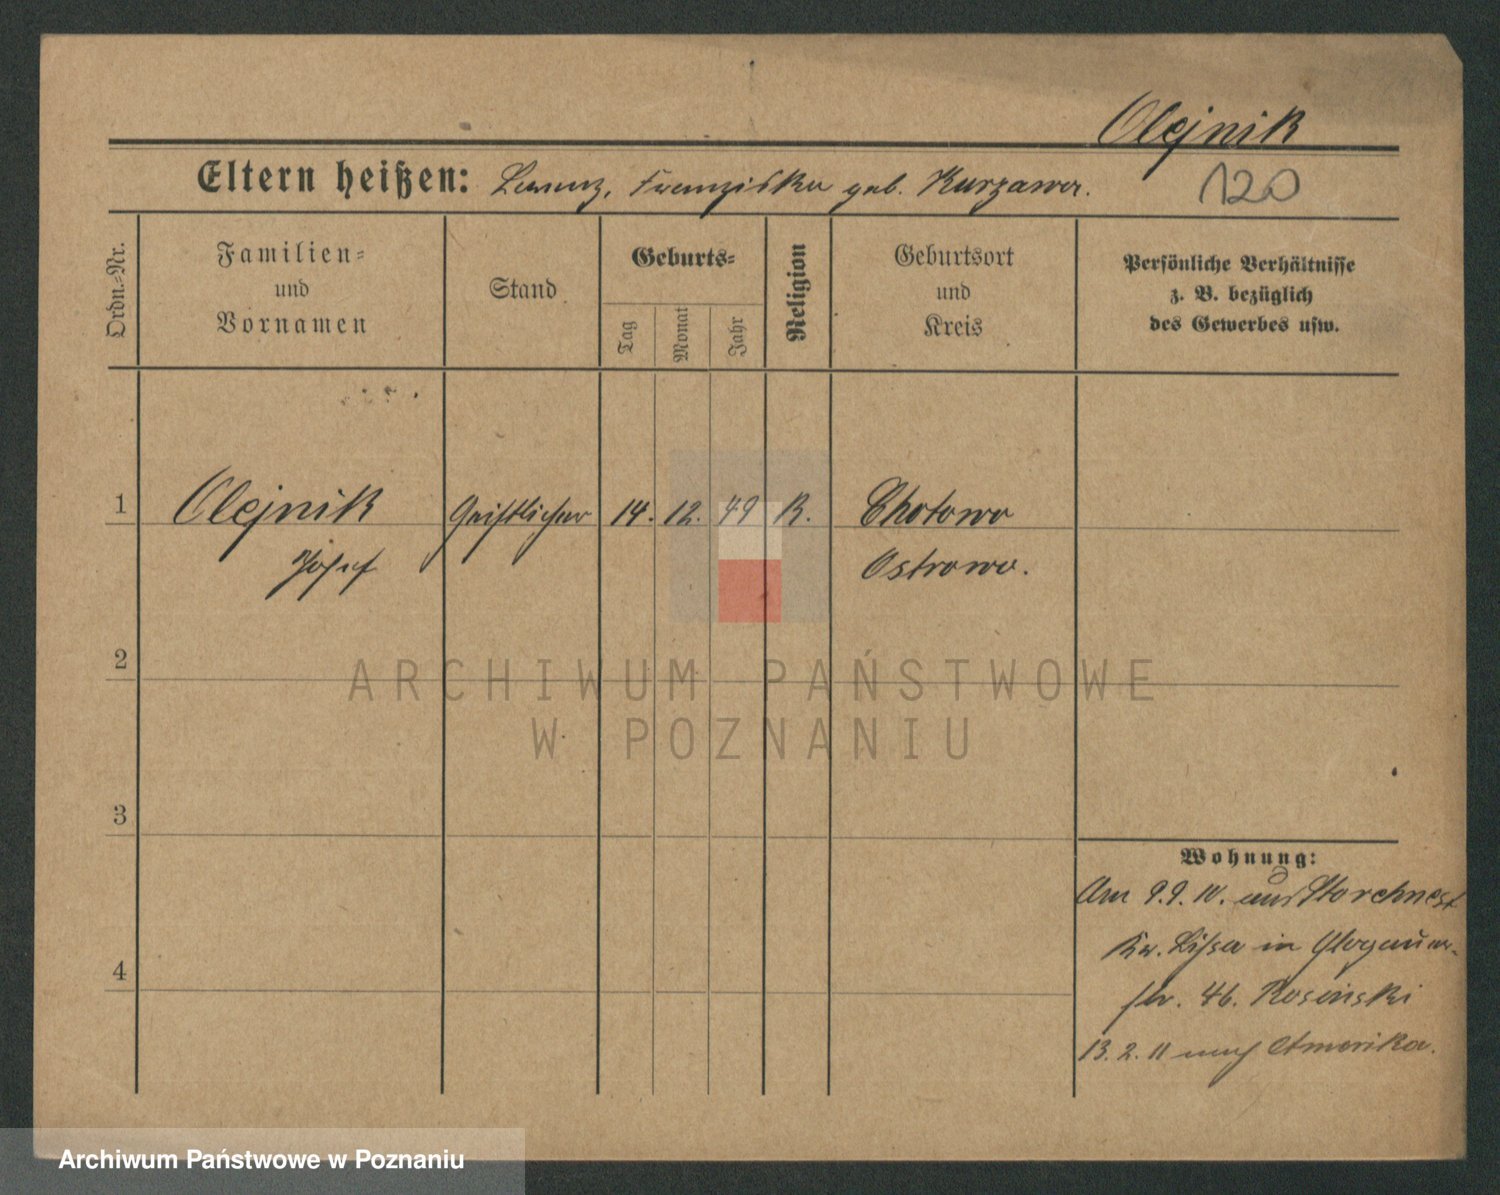 Olejnik
Eltern heißen: Lorenz, Franziska geb. Kurzawa.
120
Ordn.-Nr.
Familien-
und
Vornamen
Stand
Geburts-
Tag
Monat
Jahr
Religion
Geburtsort
und
Kreis
Persönliche Verhältnisse
z. B. bezüglich
des Gewerbes usw.
1
Olejnik
Geistlicher
14. 12. 49
K.
Chotowo
Josef
Ostrowo.
2
ARCHIWUM PAŃSTWOWE
W POZNANIU
3
Wohnung:
Am 9.9.10. aus Storchnest
Kr. Lissa in Glogauer-
str. 46. Rosinski
4
13.2.11 nach Amerika.
Archiwum Państwowe w Poznaniu